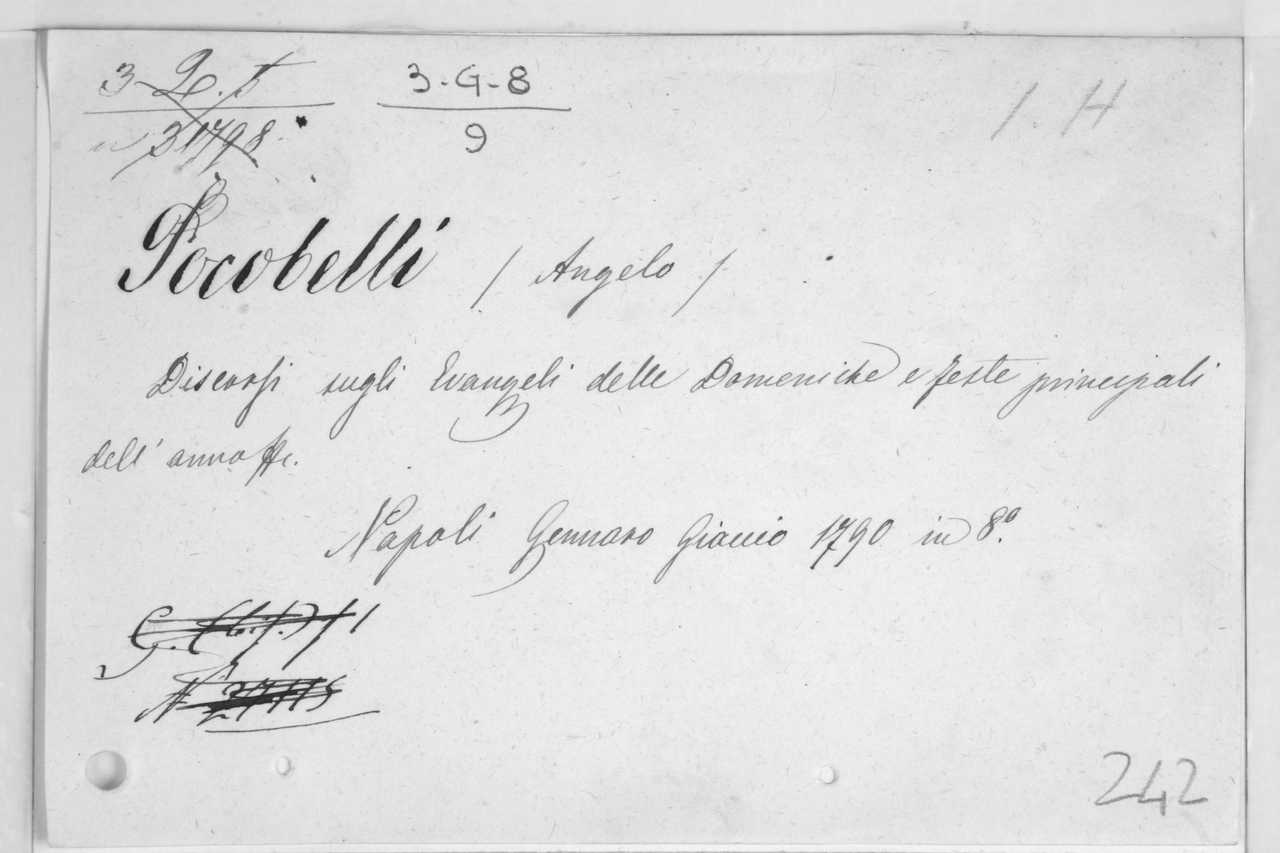 3-Q.5 3-G-8 1. H
n 31798 9
Pocobelli (Angelo)
Discorsi sugli Evangeli delle Domeniche e feste principali
dell' anno &c.
Napoli Gennaro Giaccio 1790 in 8.º
N 27115
242